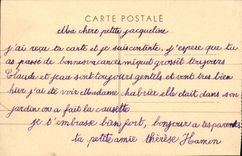 CARTE POSTALE
Ma chère petite jacqueline
j'ai reçu ta carte et je suis contente, j'espère que tu
as passé de bonnes vacances grossit toujours
Claude et jean sont toujours gentils et vont très bien
hier j'ai été voir madame chabrier elle était dans son
jardin on a fait la causette
je t'embrasse bien fort, bonjour a tes parents
ta petite amie thérèse Hamon